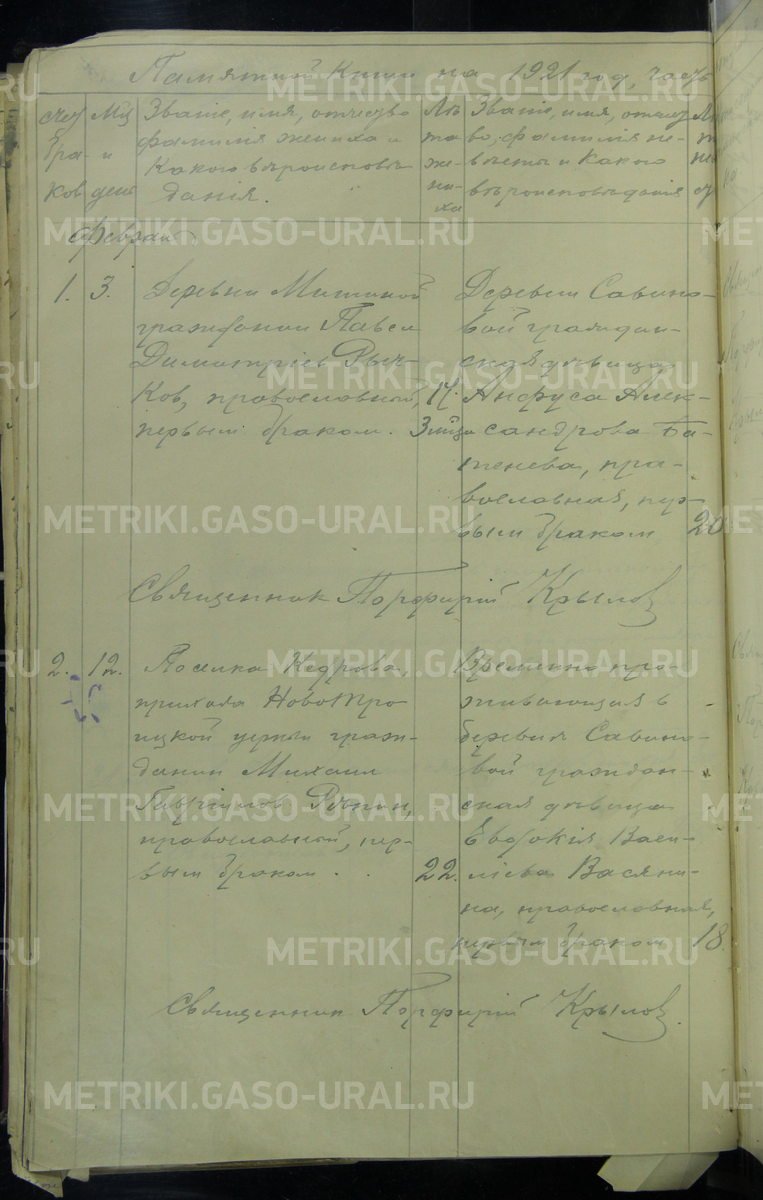 Памятной Книги на 1921 год, часть
Счет бра- ков
Мц и день
Званіе, имя, отчество
фамилія жениха и
какого вѣроисповѣ
данія.
Лѣ
та
же-
ни-
ха
Званіе, имя, отчест
во, фамилія не-
вѣсты и какого
вѣроисповѣданія
Февраль
1. 3.
Деревни Мишиной
гражданин Павел
Димитріев Рыч-
ков, православный,
первым браком.
17.
3 мѣца
Деревни Савино-
вой граждан-
ская дѣвица
Анфуса Алек-
сандрова Ба-
тенева, пра-
вославная, пер-
вым браком
20
Священник Порфирій Крылов
2. 12.
Поселка Кедрова,
прихода НовоТро-
ицкой церкви граж-
данин Михаил
Гавріилов Рѣпин,
православный, пер-
вым браком.
22.
Временно про-
живающая в
деревнѣ Савино-
вой граждан-
ская дѣвица
Евдокія Васи-
ліева Васяни-
на, православная,
первым браком
18.
Священник Порфирій Крылов.
METRIKI.GASO-URAL.RU